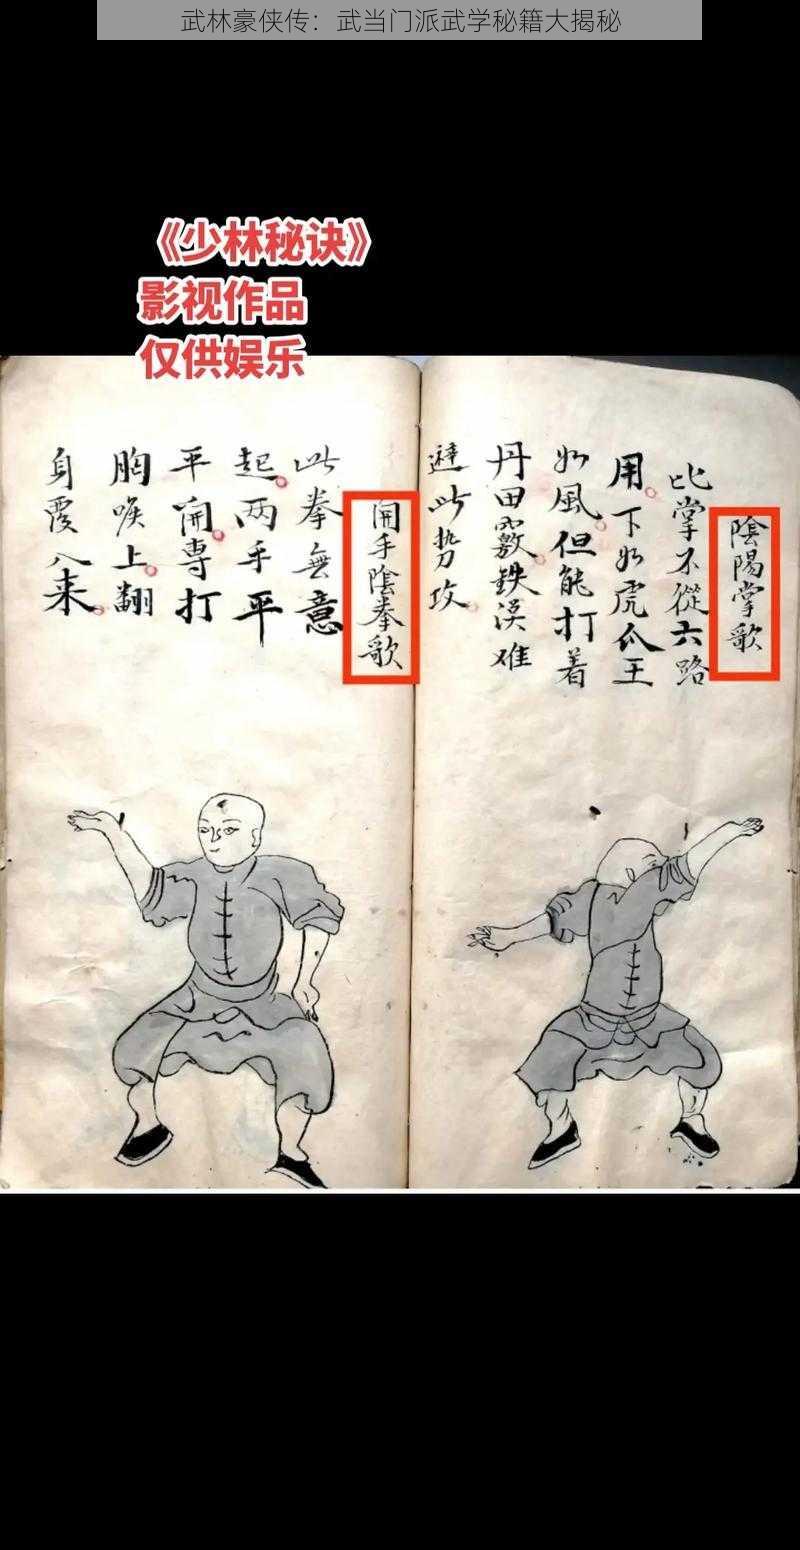 武林豪侠传：武当门派武学秘籍大揭秘
《少林秘诀》
影视作品
仅供娱乐
陰陽掌歌
比掌不從六路
用下如虎爪王
如風但能打着
丹田竅鉄漢难
避此势攻
開手陰拳歌
此拳無意
起两手平
平開専打
胸喉上翻
身覆八来